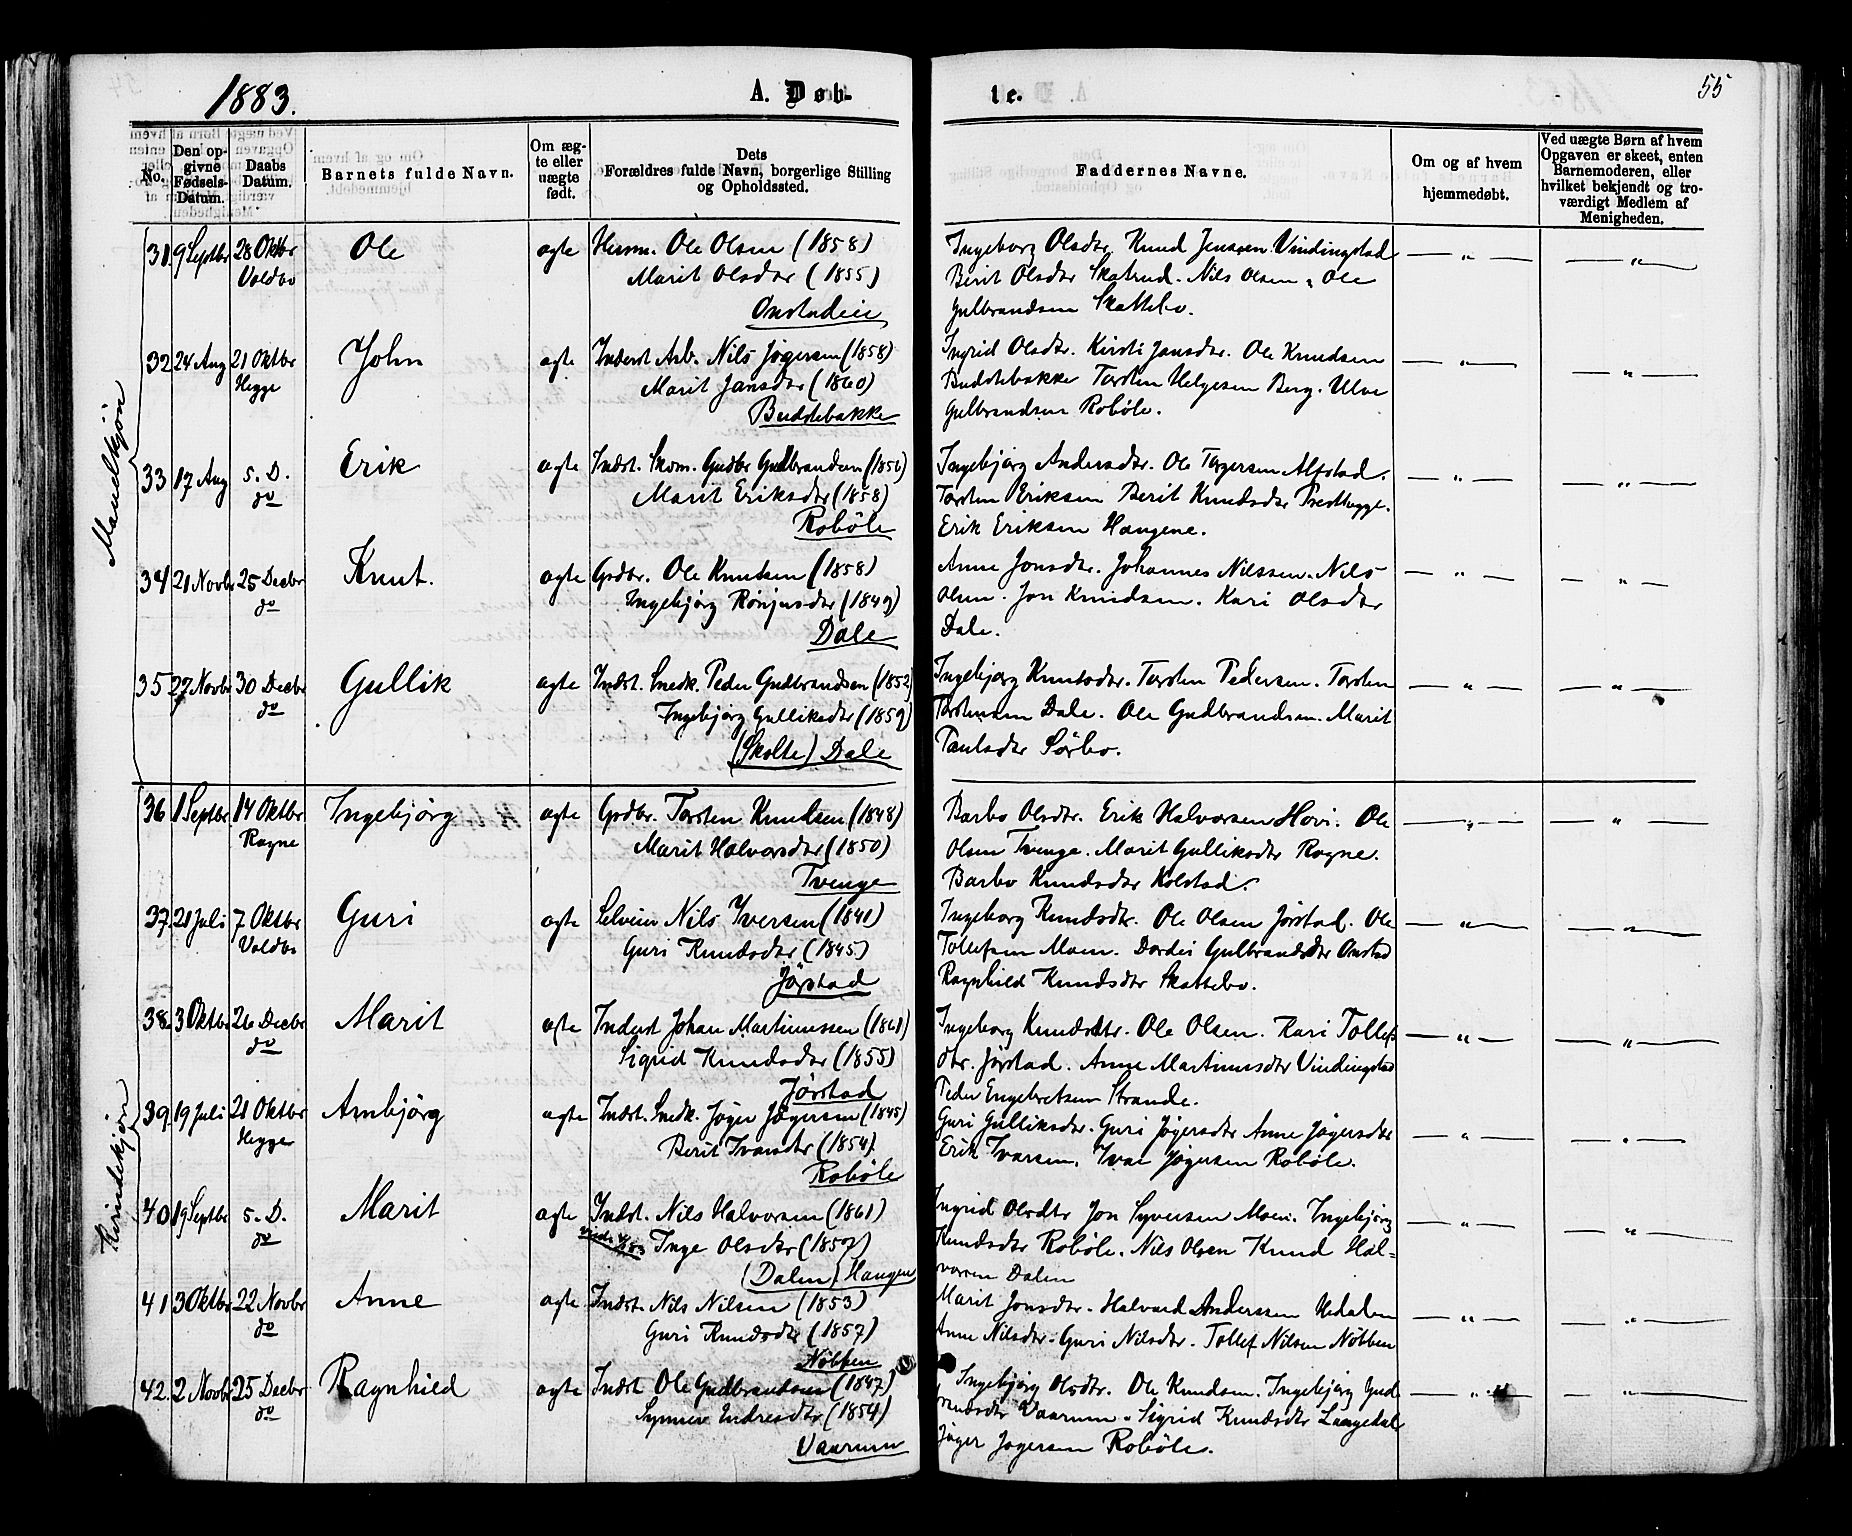 1883.
A. Døb-
te.
55
No.
Den op-
givne
Fødsels-
Datum.
Daabs
Datum.
Barnets fulde Navn.
Om æg-
te eller
uægte
født.
Dets
Forældres fulde Navn, borgerlige Stilling
og Opholdssted.
Faddernes Navne.
Om og af hvem
hjemmedøbt.
Ved uægte Børn af hvem
Opgaven er skeet, enten
Barnemoderen, eller
hvilket bekjendt og tro-
værdigt Medlem af
Menigheden.
Mandkjøn
31. 9 Septbr 28 Oktbr Ole ægte Husm. Ole Olsen (1858) Ingeborg Olsdtr Knud Jensen Vindingstad — " — — " —
Voldbo Marit Olsdtr (1855) Berit Olsdtr Skatrud. Nils Olsen, Ole
Onstadeie Gulbrandsen Skattebo.
32 24 Aug 21 Oktbr John ægte Inderst Arb. Nils Jøgersen (1858) Ingrid Olsdtr. Kirsti Jansdtr. Ole Knudsen — " — — " —
Hegge Marit Jansdtr (1860) Buddebakke Torsten Helgesen Berg. Ulve
Buddebakke Gulbrandsen Robøle.
33 17 Aug s. D. Erik ægte Indst. Skom. Gudbr Gudbrandsen (1856) Ingebjørg Andersdtr. Ole Torgersen Alfstad. — " — — " —
do Marit Eriksdtr (1858) Torsten Eriksen Berit Knudsdtr Presthegge.
Robøle Erik Eriksen Haugene.
34 21 Novbr 25 Decbr Knut. ægte Grdbr. Ole Knutsen (1858) Anne Jonsdtr. Johannes Nilssen. Nils — " — — " —
do Ingebjørg Rønjusdtr (1849) Olsen. Jon Knudsen. Kari Olsdtr
Dale Dale.
35 27 Novbr 30 Decbr Gullik ægte Indst. Snedk. Peder Gudbrandsen (1852) Ingebjørg Knudsdtr. Torsten Pedersen. Torsten — " — — " —
do Ingebjørg Gulliksdtr (1859) Torstensen Dale. Ole Gudbrandsen. Marit
(Skolte) Dale Paulsdtr Sørbo.
Kvindekjøn
36 1 Septbr 14 Oktbr Ingebjørg ægte Grdbr. Torsten Knudsen (1848) Barbo Olsdtr. Erik Halvorsen Hovi. Ole — " — — " —
Rogne Marit Halvorsdtr (1850) Olsen Tvenge. Marit Gulliksdtr Rogne.
Tvenge Barbo Knudsdtr Kolstad.
37. 21 Juli 7 Oktbr Guri ægte Selveier Nils Yversen (1841) Ingeborg Knudsdtr. Ole Olsen Jørstad. Ole — " — — " —
Voldbo Guri Knudsdtr (1845) Tollefsen Moen. Dordei Gulbrandsdtr Onstad
Jørstad Ragnhild Knudsdtr Skattebo.
38. 3 Oktbr 26 Decbr Marit ægte Inderst Johan Martinussen (1861) Ingeborg Knudsdtr. Ole Olsen. Kari Tollefs — " — — " —
do Sigrid Knudsdtr (1855) dtr. Jørstad. Anne Martinusdtr Vindingstad
Jørstad Peder Engebretsen Strande.
39. 19 Juli 21 Oktbr Arnbjørg ægte Indst. Snedk. Jøger Jøgersen (1845) Guri Gulliksdtr. Guri Jøgersdtr Anne Jøgersdtr — " — — " —
Hegge Berit Ivarsdtr (1854) Erik Ivarsen. Ivar Jøgersen Robøle.
Robøle
40. 19 Septbr s. D. Marit ægte Indst. Nils Halvorsen (1861) Ingrid Olsdtr Jon Syversen Moen. Ingebjørg — " — — " —
do Inge Olsdtr (1859) Knudsdtr Robøle. Nils Olsen Knud Hal-
(Dalen) Haugen vorsen Dalen
41 3 Oktbr 22 Novbr Anne ægte Indst. Nils Nilsen (1853) Marit Jonsdtr. Halvard Anderssen Hedalen — " — — " —
do Guri Knudsdtr (1857) Anne Nilsdtr. Guri Nilsdtr. Tollef Nilsen Nøbben
Nøbben
42. 2 Novbr 25 Decbr Ragnhild ægte Indst Ole Gudbrandsen (1847) Ingebjørg Olsdtr. Ole Knudsen. Ingebjørg Gud — " — — " —
do Synneve Endresdtr (1854) brandsdtr Vaarum. Sigrid Knudsdtr Langedal
Vaarum Jøger Jøgersen Robøle.